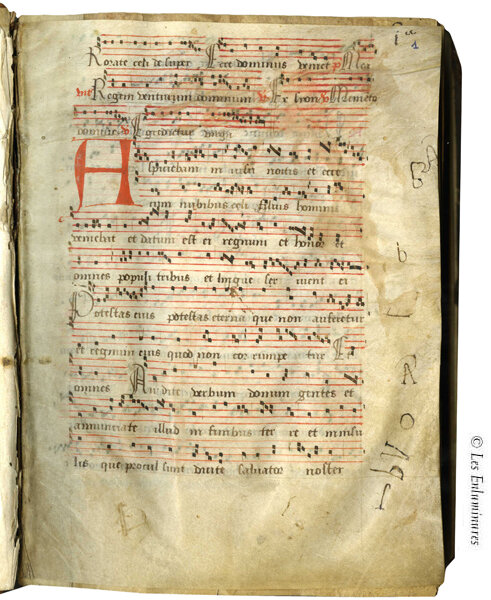 Rorate celi de super Ecce dominus veniet
Regem venturum dominum Ex syon
Egredietur virga
Aspiciebam in visu noctis et ecce
cum nubibus celi filius hominis
veniebat et datum est ei regnum et honor et
omnes populi tribus et lingue ser vient ei
Potestas eius potestas eterna que non auferetur
et regnum eius quod non cor rumpe tur Et
omnes Au dite verbum domini gentes et
annunciate illud in finibus ter re et in insu
lis que procul sunt dicite salvator noster
© Les Enluminures